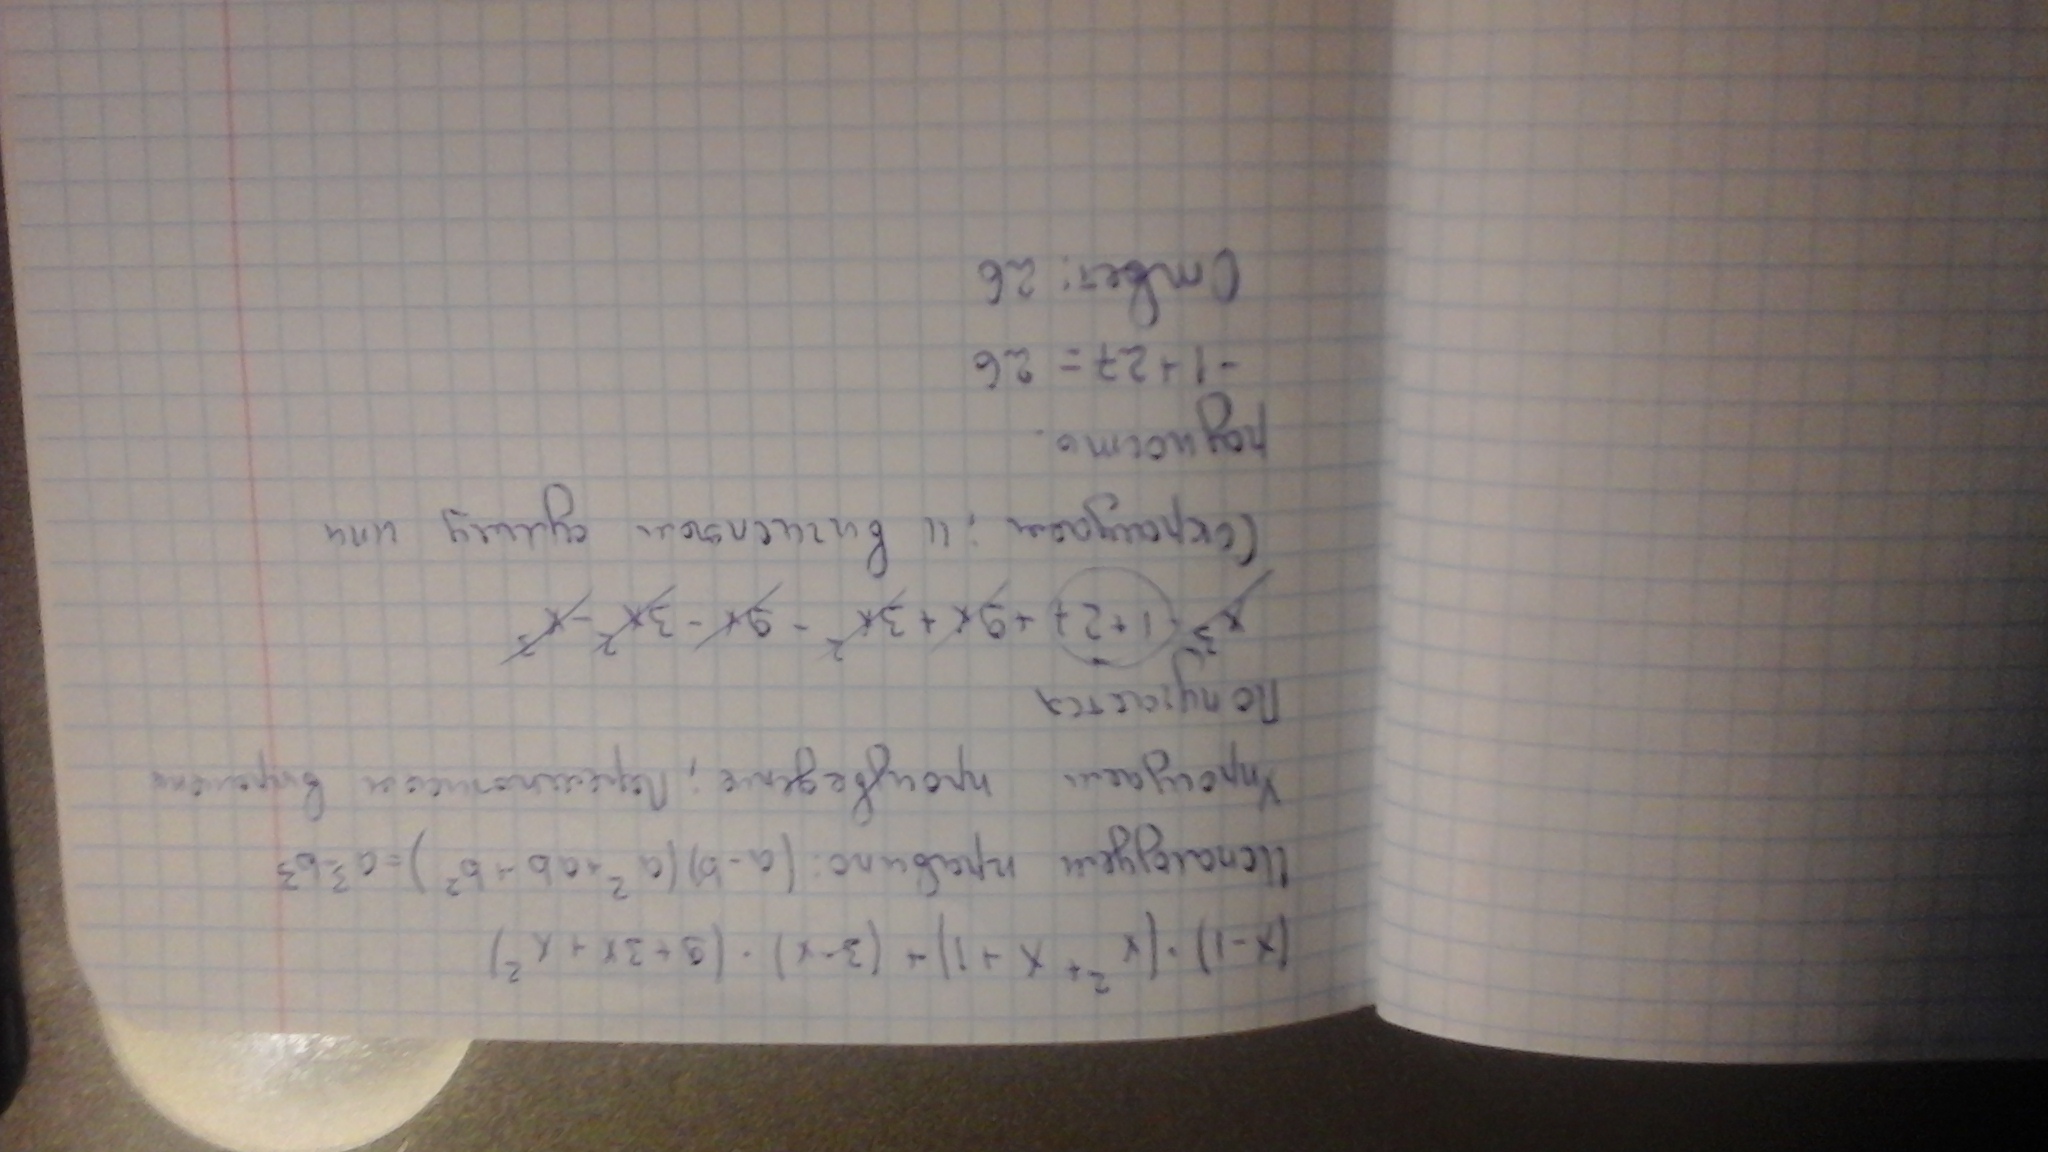 (x-1)·(x²+x+1)+(3-x)·(9+3x+x²)
Используем правило: (a-b)(a²+ab+b²)=a³-b³
Упрощаем произведение; Перемножаем выражени
Получается
x³-1+27+9x+3x²-9x-3x²-x³
Сокращаем; И вычисляем сумму или
разность.
-1+27=26
Ответ: 26